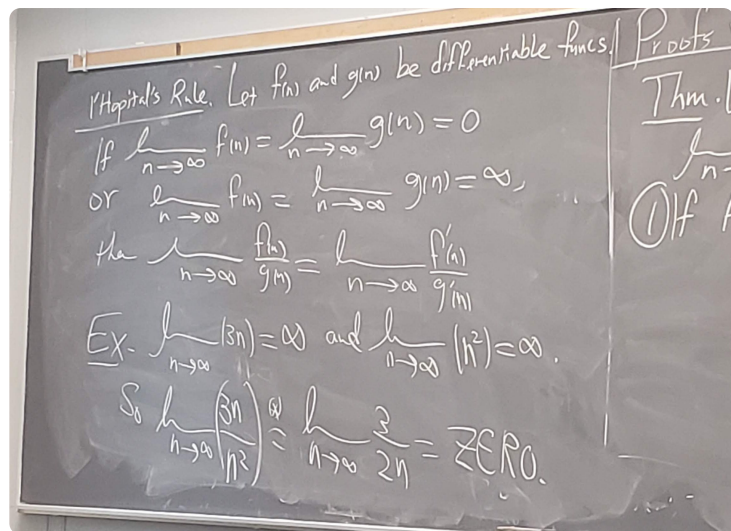 l'Hopital's Rule. Let f(n) and g(n) be differentiable funcs.
If lim n→∞ f(n) = lim n→∞ g(n) = 0
or lim n→∞ f(n) = lim n→∞ g(n) = ∞,
then lim n→∞ f(n)/g(n) = lim n→∞ f'(n)/g'(n)
Ex. lim n→∞ (3n) = ∞ and lim n→∞ (n²) = ∞.
So lim n→∞ (3n/n²) = lim n→∞ 3/2n = ZERO.
Proofs
Thm.
lim n→
① If